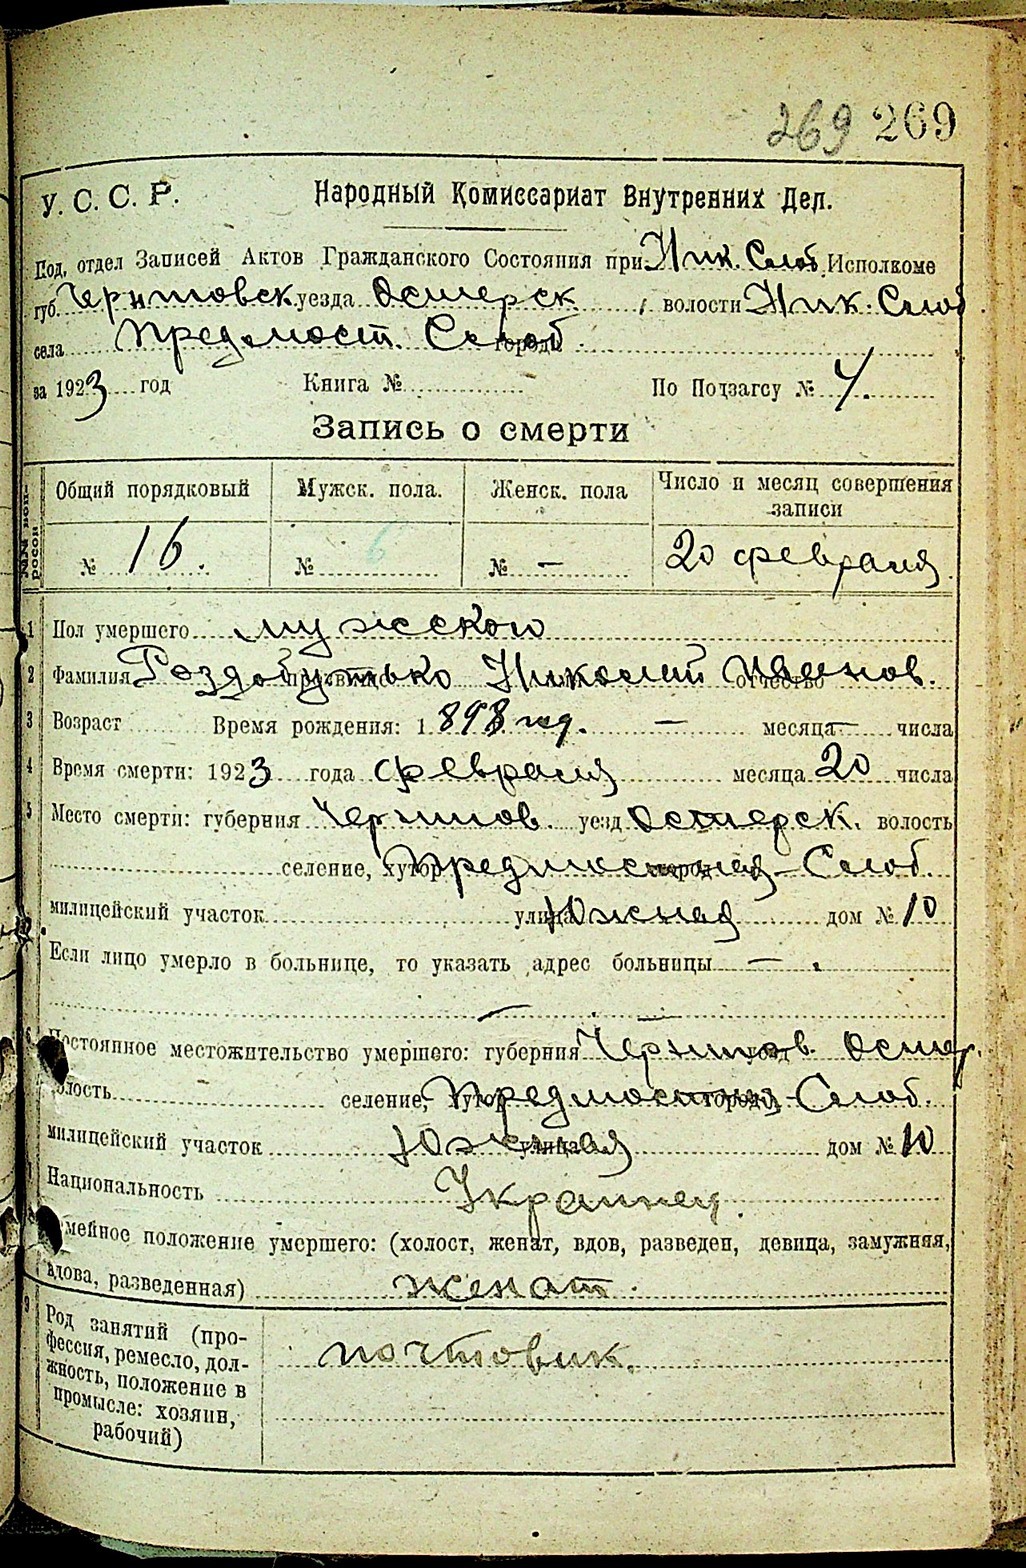 269 269
У. С. С. Р. Народный Комиссариат Внутренних Дел.
Под. отдел Записей Актов Гражданского Состояния при Ник. Слоб Исполкоме
губ. Черниговск уезда Остерск, волости Ник. Слоб
села Предмост. Слоб города
за 1923 год Книга № По Подзагсу № 4.
Запись о смерти
№№ воп-
росов
Общий порядковый Мужск. пола. Женск. пола Число и месяц совершения
записи
№ 16. № 6 № — 20 февраля
1 Пол умершего мужского
2 Фамилия Роздобутько прозвище Николай Иванов. отчество
3 Возраст Время рождения: 1898 год. — месяца — числа
4 Время смерти: 1923 года февраля месяца 20 числа
5 Место смерти: губерния Чернигов. уезд Остерск. волость
селение, хутор Предмостная Слоб. город
милицейский участок улица Южная дом № 10
Если лицо умерло в больнице, то указать адрес больницы — .
— —
6 Постоянное местожительство умершего: губерния Чернигов. уезд Остер.
волость селение, хутор Предмостная Слоб. город
милицейский участок Южная улица дом № 10
Национальность Украинец.
мейное положение умершего: (холост, женат, вдов, разведен, девица, замужняя,
вдова, разведенная) женат.
9 Род занятий (про-
фессия, ремесло, дол-
жность, положение в
промысле: хозяин,
рабочий)
почтовик.